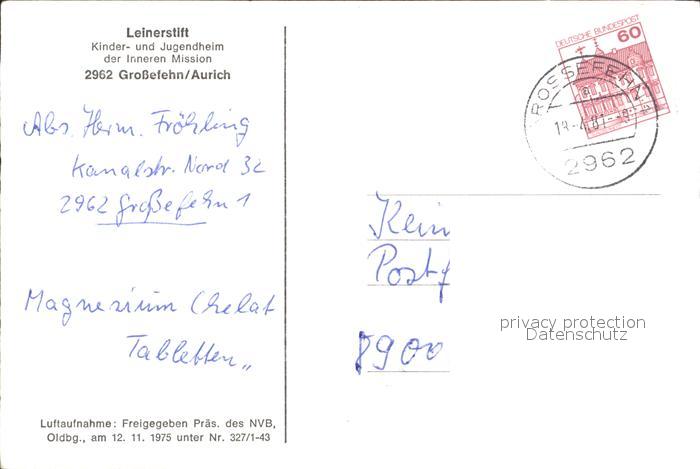 Leinerstift
Kinder- und Jugendheim
der Inneren Mission
2962 Großefehn/Aurich
Abs. Herm. Fröhling
Kanalstr. Nord 32
2962 Großefehn 1
Magnesium Chelat
Tabletten„
Luftaufnahme: Freigegeben Präs. des NVB,
Oldbg., am 12. 11. 1975 unter Nr. 327/1-43
DEUTSCHE BUNDESPOST
60
GROSSEFEHN
2962
Kein
Postf
8900
privacy protection
Datenschutz